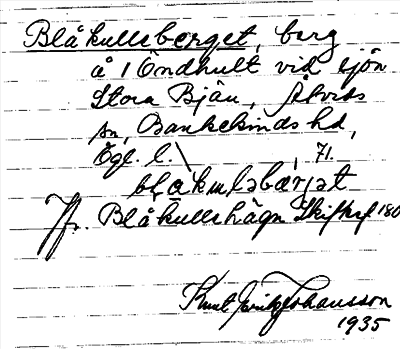 Blåkullsberget, berg
å 1 Öndhult vid sjön
Stora Bjän, Åtvids
sn, Bankekinds hd,
Ögl. l. 71.
blakulsbærjet
Jfr. Blåkullshägn Skifteskf 180
Knut Johansson
1935